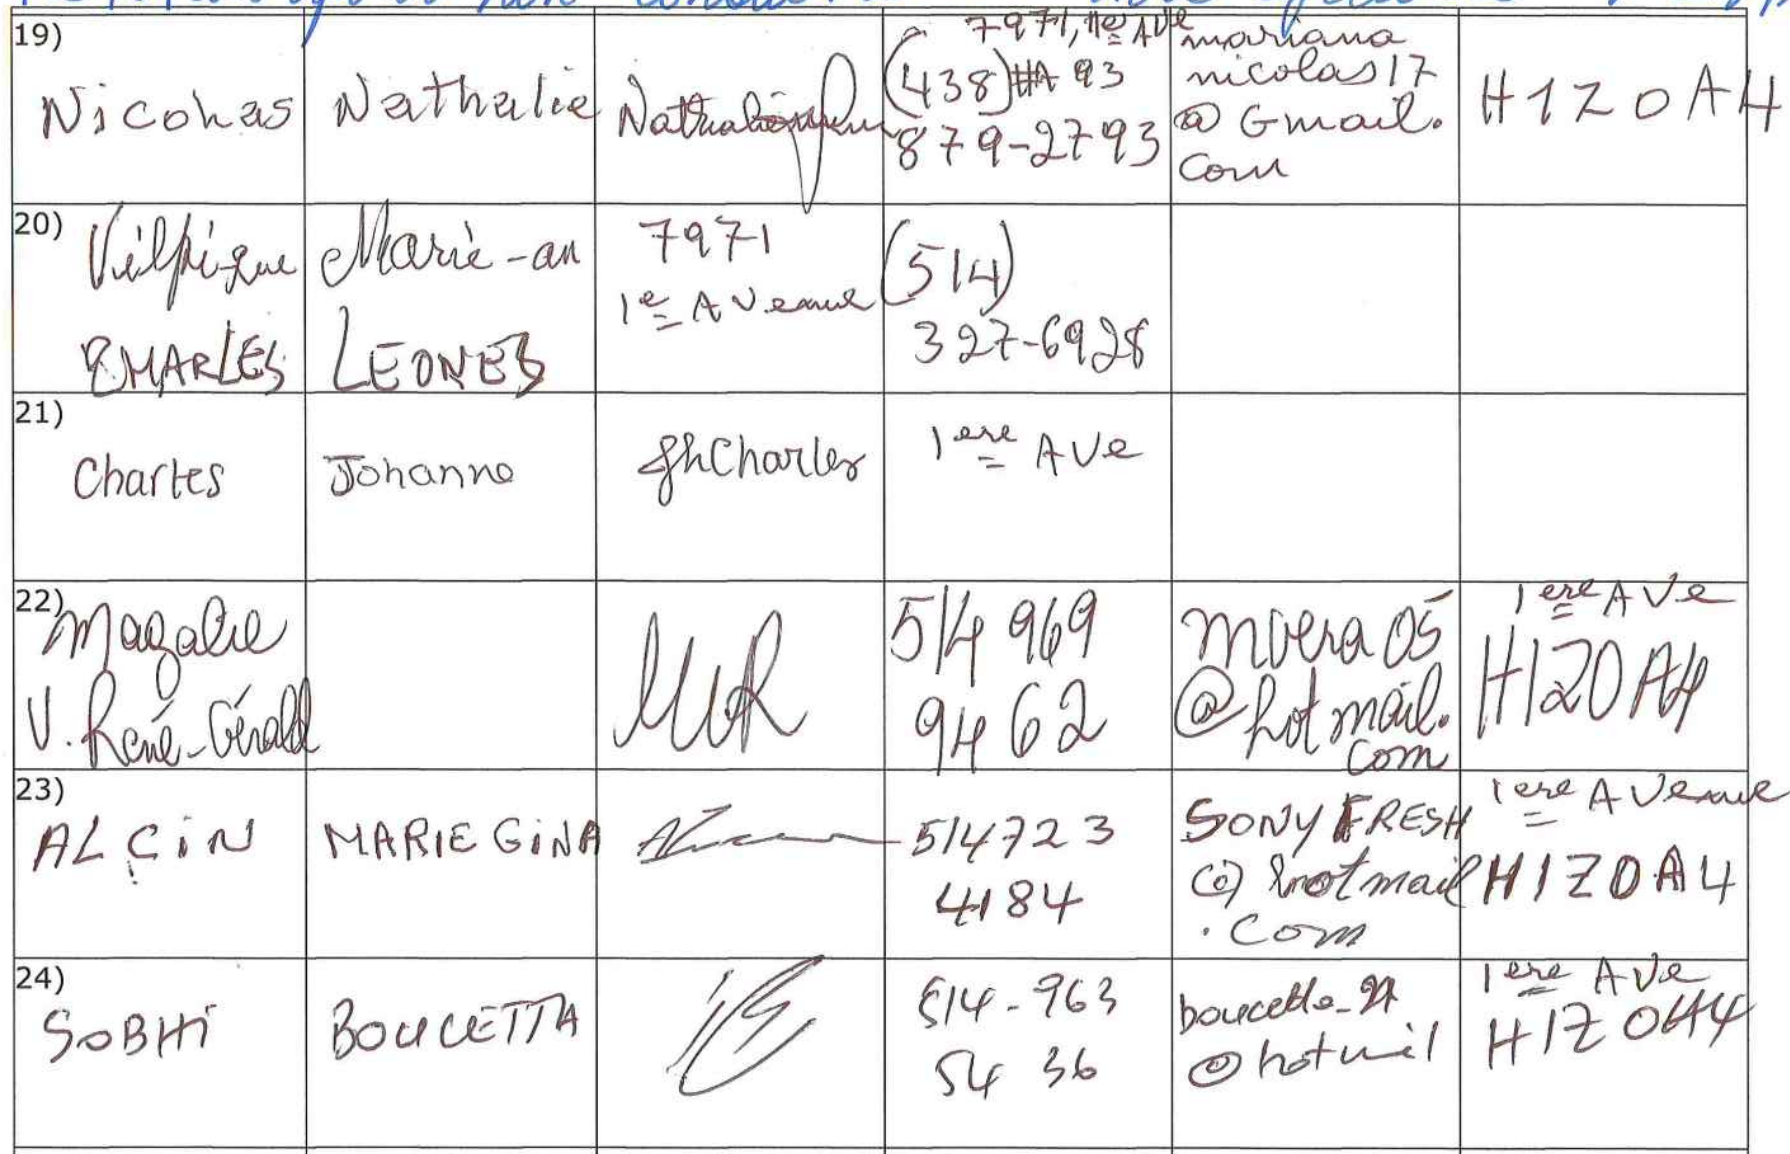 19)
Nicolas
Nathalie
7971, 1ère AVe
(438) #A 93
879-2793
mariana
nicolas17
@ Gmail.
Com
H1Z0A4
20)
CHARLES
Marie-an
LEONES
7971
1e Avenue
(514)
327-6928
21)
Charles
Johanne
JhCharles
1ere AVe
22)
Magalie
V. René-Gérald
MVR
514 969
9462
mvera05
@hotmail.
com
1ere AVe
H1Z0A4
23)
ALCiN
MARIE GiNA
514723
4184
SONYFRESH
@ hotmail
.com
1ere AVenue
H1Z0A4
24)
SOBHi
BOUCETTA
514-963
54 36
1ere AVe
H1Z0A4